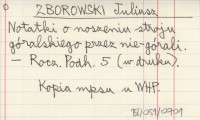 ZBOROWSKI Juliusz
Notatki o noszeniu stroju
góralskiego przez nie-górali.
— Rocz. Podh. 5 (w druku).
Kopia mpsu w WHP.